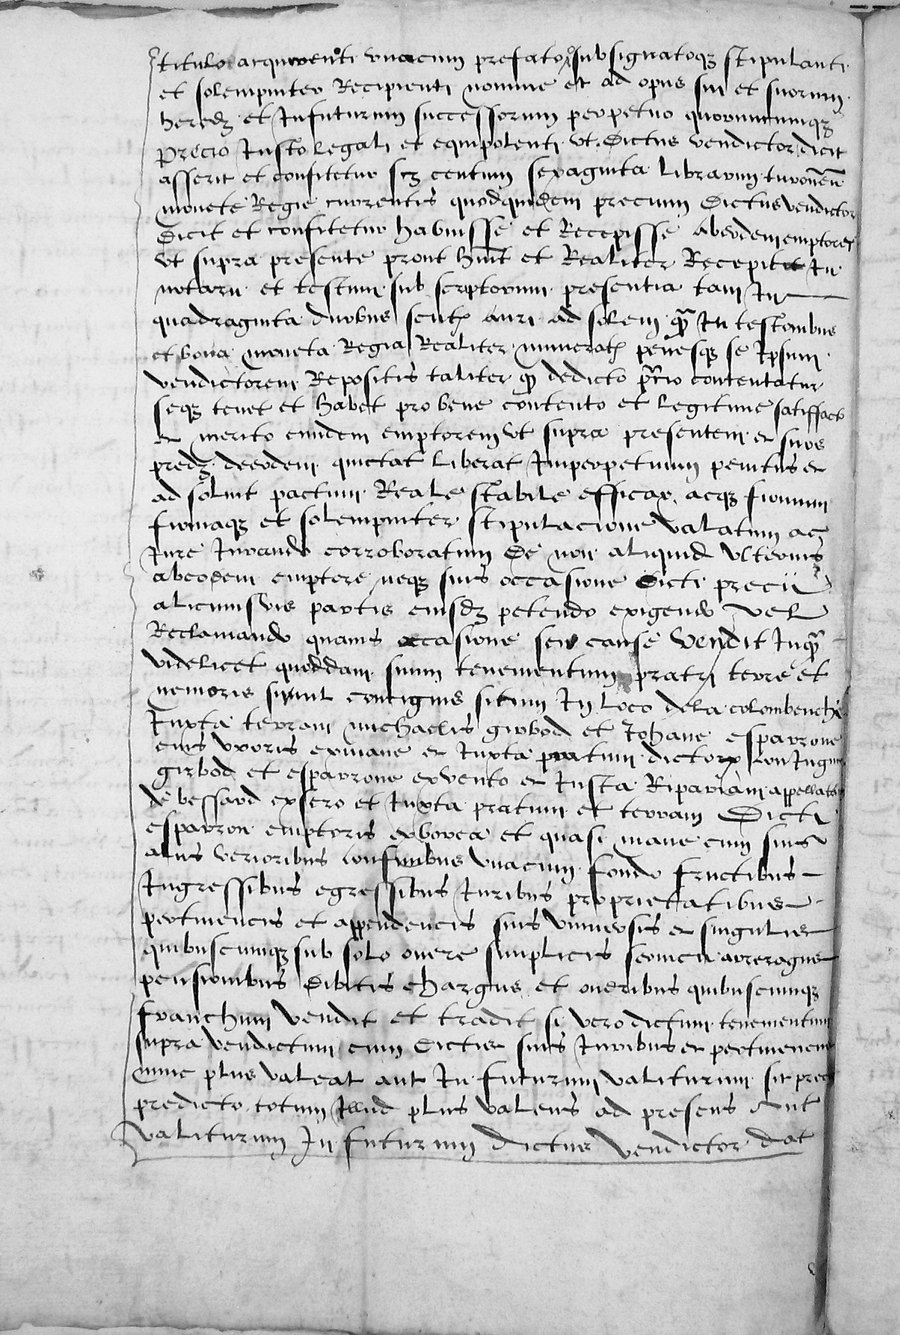 titulo acquirenti unacum prefato subsignatoqz stipulanti
et solempniter Recipienti nomine et ad opus sui et suorum
heredz et Infuturum successorum perpetuo quorumcumqz
precio Justo legali et equipolenti ut dictus venditor dicit
asserit et confitetur scz centum sexaginta librarum turonen
monete Regie currentis quodquidem precium dictus vendictor
dicit et confitetur habuisse et Recepisse ab eodem emptore
ut supra presente prout huit et Realiter Recepit In
notarii et testium sub scriptorum presentia tam In
quadraginta duobus scut auri ad solem qz In testonibus
et bona moneta Regia Realiter numerat penesqz se Ipsum
vendictorem Repositis taliter qz dedicto precio contentatur
seqz tenet et habet pro bene contento et legitime satisfacto
et merito eundem emptorem ut supra presentem et suos
predz deeodem quictat liberat Imperpetuum penitus et
ad solvit pactum Reale stabile efficax acqz firmum
firmaqz et solempniter stipulacione valatum ac
Jure Jurando corroboratum De non aliquid ulterius
abeodem emptore neqz suis occasione dicti precii
alicuiusvis partis eiusdz petendo exigendo vel
Reclamando quamis occasione seu cause Vendit Inqz
videlicet quoddam suum tenementum prati terre et
nemoris simul contiguis situm In loco dela colombenche
Juxta terram michaelis girbod et Johane esparrone
eius uxoris exmane et Juxta pratum dictorz con Jugum
girbod et esparrone exvento et Justa Ripariam appellatam
de bessard exsero et Juxta pratum et terram Dicti
esparron emptoris exborea et quasi mane cum suis
aliis verioribus confinibus unacum fondo fructibus
Ingressibus egressibus Juribus proprietatibus
pertinenciis et appendenciis suis universis et singulis
quibuscumqz sub solo onere simplicis servicii arreragiis
pensionibus Dibitis chargiis et oneribus quibuscumqz
franchum vendit et tradit si vero dictum tenementum
supra vendictum cum dictis suis Juribus et pertinenciis
nunc plus valeat aut In futurum valiturum sit precio
predicto totum Illud plus valens ad presens Aut
valiturum In futurum dictus vendictor dat